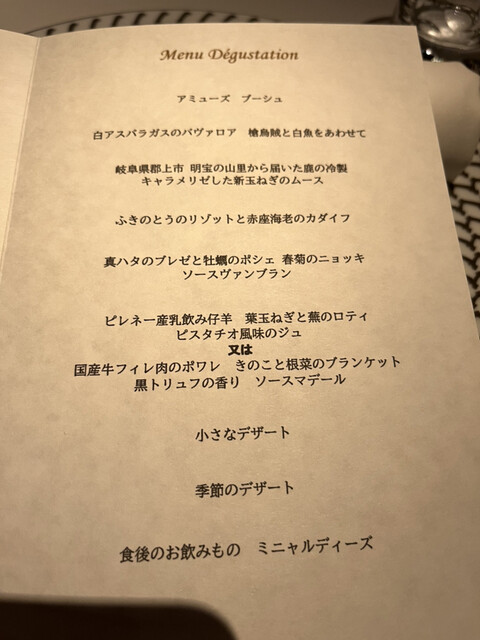 Menu Dégustation
アミューズ　ブーシュ
白アスパラガスのバヴァロア　槍烏賊と白魚をあわせて
岐阜県郡上市 明宝の山里から届いた鹿の冷製
キャラメリゼした新玉ねぎのムース
ふきのとうのリゾットと赤座海老のカダイフ
真ハタのブレゼと牡蠣のポシェ 春菊のニョッキ
ソースヴァンブラン
ピレネー産乳飲み仔羊　葉玉ねぎと蕪のロティ
ピスタチオ風味のジュ
又は
国産牛フィレ肉のポワレ　きのこと根菜のブランケット
黒トリュフの香り　ソースマデール
小さなデザート
季節のデザート
食後のお飲みもの　ミニャルディーズ